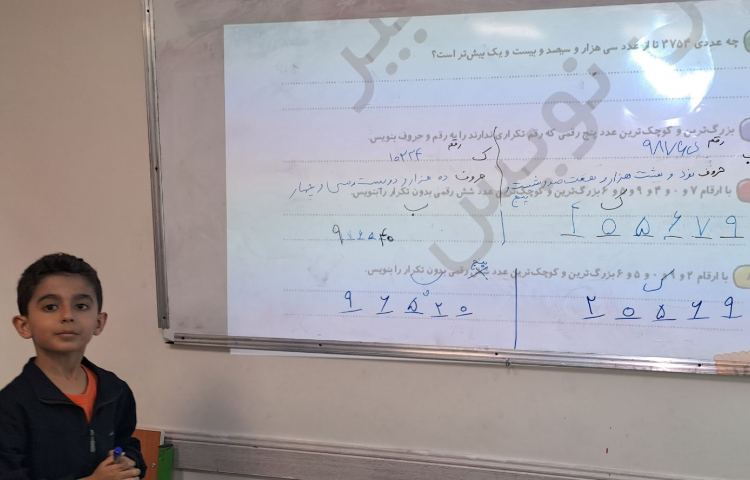 چه عددی ۳۷۵۴ تا از عدد سی هزار و سیصد و بیست و یک بیش‌تر است؟
بزرگ‌ترین و کوچک‌ترین عدد پنج رقمی که رقم تکراری ندارند را به رقم و حروف بنویس.
رقم ۹۸۷۶۵
ک رقم ۱۰۲۳۴
حروف نود و هشت هزار و هفت صد و شصت و پنج
حروف ده هزار و دویست و سی و چهار
با ارقام ۷ و ۰ و ۴ و ۹ و ۵ و ۶ بزرگ‌ترین و کوچک‌ترین عدد شش رقمی بدون تکرار را بنویس.
ک ۴ ۰ ۵ ۶ ۷ ۹
ب
با ارقام ۲ و ۹ و ۰ و ۵ و ۶ بزرگ‌ترین و کوچک‌ترین عدد پنج رقمی بدون تکرار را بنویس.
ک ۲ ۰ ۵ ۶ ۹
۹ ۶ ۵ ۲ ۰
نویس